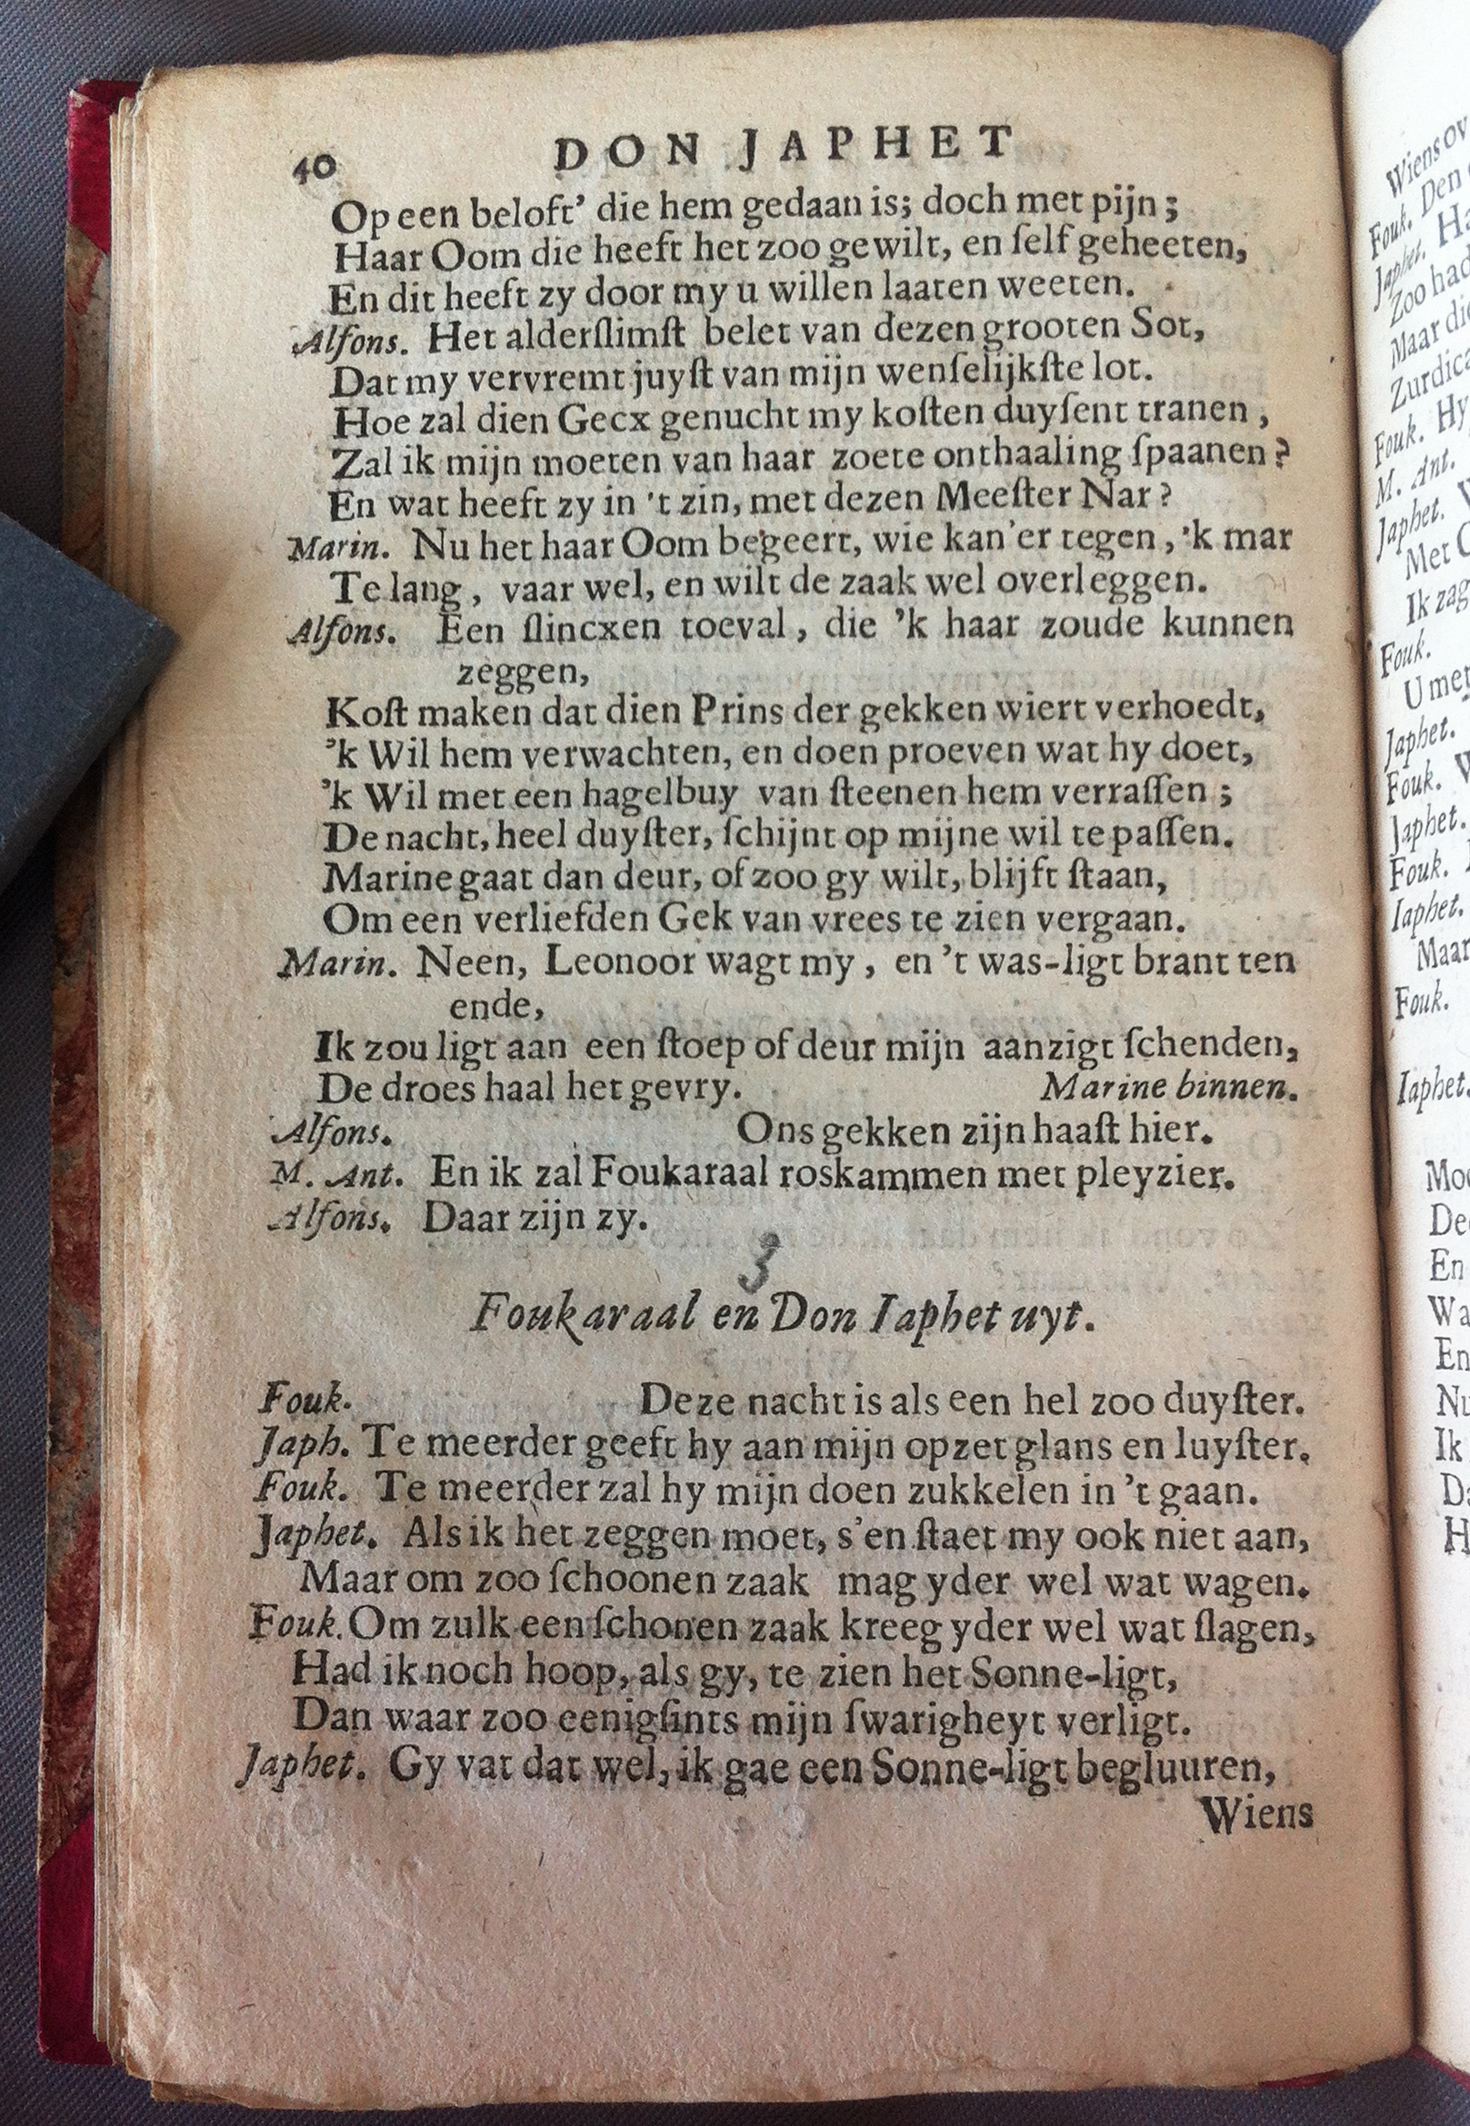 40 DON JAPHET
Op een beloft' die hem gedaan is; doch met pijn;
Haar Oom die heeft het zoo gewilt, en ſelf geheeten,
En dit heeft zy door my u willen laaten weeten.
Alfons. Het alderſlimſt belet van dezen grooten Sot,
Dat my vervremt juyſt van mijn wenſelijkſte lot.
Hoe zal dien Gecx genucht my koſten duyſent tranen,
Zal ik mijn moeten van haar zoete onthaaling ſpaanen?
En wat heeft zy in 't zin, met dezen Meeſter Nar?
Marin. Nu het haar Oom begeert, wie kan'er tegen, 'k mar
Te lang, vaar wel, en wilt de zaak wel overleggen.
Alfons. Een ſlincxen toeval, die 'k haar zoude kunnen
zeggen,
Koſt maken dat dien Prins der gekken wiert verhoedt,
'k Wil hem verwachten, en doen proeven wat hy doet,
'k Wil met een hagelbuy van ſteenen hem verraſſen;
De nacht, heel duyſter, ſchijnt op mijne wil te paſſen.
Marine gaat dan deur, of zoo gy wilt, blijft ſtaan,
Om een verliefden Gek van vrees te zien vergaan.
Marin. Neen, Leonoor wagt my, en 't was-ligt brant ten
ende,
Ik zou ligt aan een ſtoep of deur mijn aanzigt ſchenden,
De droes haal het gevry. Marine binnen.
Alfons. Ons gekken zijn haaſt hier.
M. Ant. En ik zal Foukaraal roskammen met pleyzier.
Alfons. Daar zijn zy.
3
Foukaraal en Don Iaphet uyt.
Fouk. Deze nacht is als een hel zoo duyſter.
Japh. Te meerder geeft hy aan mijn opzet glans en luyſter.
Fouk. Te meerder zal hy mijn doen zukkelen in 't gaan.
Japhet. Als ik het zeggen moet, s'en ſtaet my ook niet aan,
Maar om zoo ſchoonen zaak mag yder wel wat wagen.
Fouk. Om zulk een ſchonen zaak kreeg yder wel wat ſlagen,
Had ik noch hoop, als gy, te zien het Sonne-ligt,
Dan waar zoo eenigſints mijn ſwarigheyt verligt.
Japhet. Gy vat dat wel, ik gae een Sonne-ligt begluuren,
Wiens
Wiens ov
Fouk. Den
Japhet. Ha
Zoo had
Maar die
Zurdica
Fouk. Hy
M. Ant.
Japhet.
Met
Ik zag
Fouk.
U mer
Japhet.
Fouk.
Japhet.
Fouk.
Iaphet.
Maar
Fouk.
Iaphet.
En
Wa
En
Ik